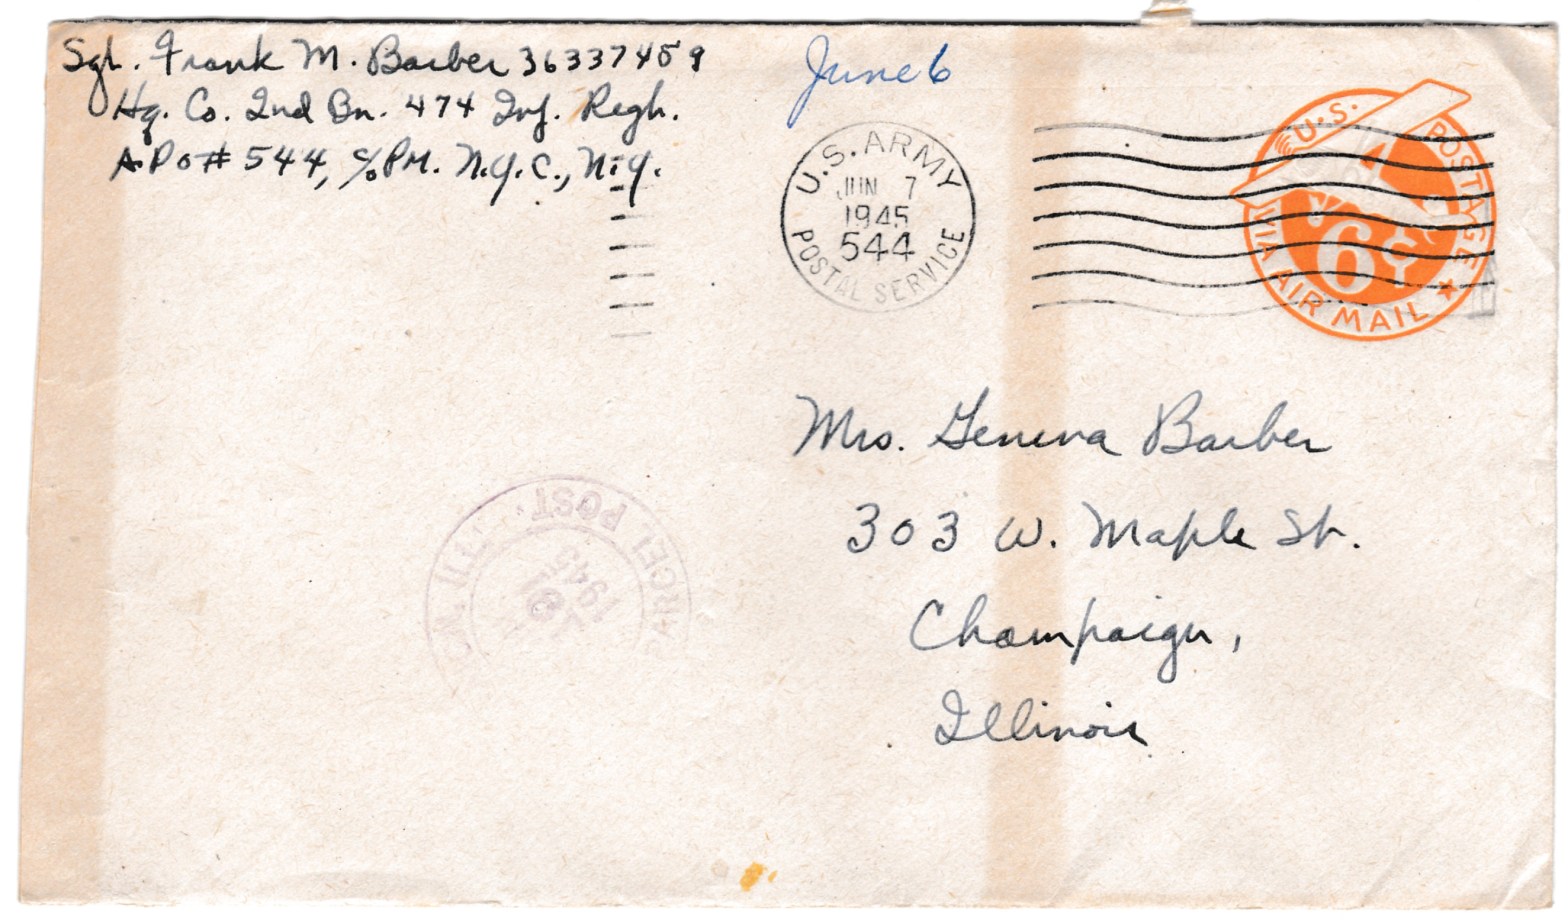 Sgt. Frank M. Barber 36337459
Hq. Co. 2nd Bn. 474 Inf. Regt.
A.P.O # 544, c/o PM. N.Y.C., N.Y.
June 6
U.S. ARMY
JUN 7
1945
544
POSTAL SERVICE
U.S. POSTAGE
6¢
VIA AIR MAIL
Mrs. Geneva Barber
303 W. Maple St.
Champaign,
Illinois
PARCEL POST.
1945